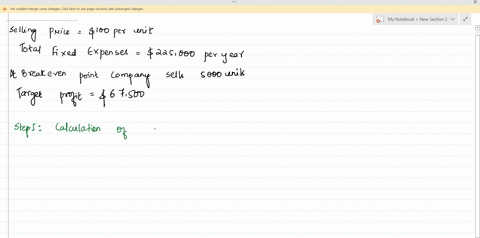 We couldn't merge some changes. Click here to see page versions with unmerged changes.
My Notebook > New Section 2
Selling price = $100 per unit
Total Fixed Expenses = $225,000 per year
At Breakeven point Company sells 5000 units
Target profit = $67,500
Step I: Calculation of